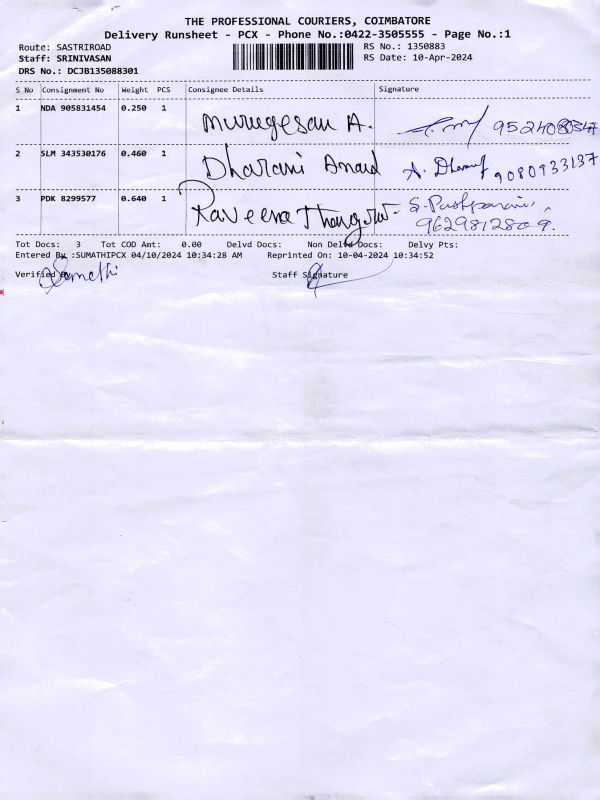 THE PROFESSIONAL COURIERS, COIMBATORE
Delivery Runsheet - PCX - Phone No.:0422-3505555 - Page No.:1
Route: SASTRIROAD RS No.: 1350883
Staff: SRINIVASAN RS Date: 10-Apr-2024
DRS No.: DCJB135088301
S.No Consignment No Weight PCS Consignee Details Signature
1 NDA 905831454 0.250 1 Murugesan A.
2 SLM 343530176 0.460 1 Dharani Anand A. 9080933137
3 PDK 8299577 0.640 1 Raveena S. Pushparani
9629812809.
Tot Docs: 3 Tot COD Amt: 0.00 Delvd Docs: Non Delvd Docs: Delvy Pts:
Entered By :SUMATHIPCX 04/10/2024 10:34:28 AM Reprinted On: 10-04-2024 10:34:52
Verified By Sumathi Staff Signature